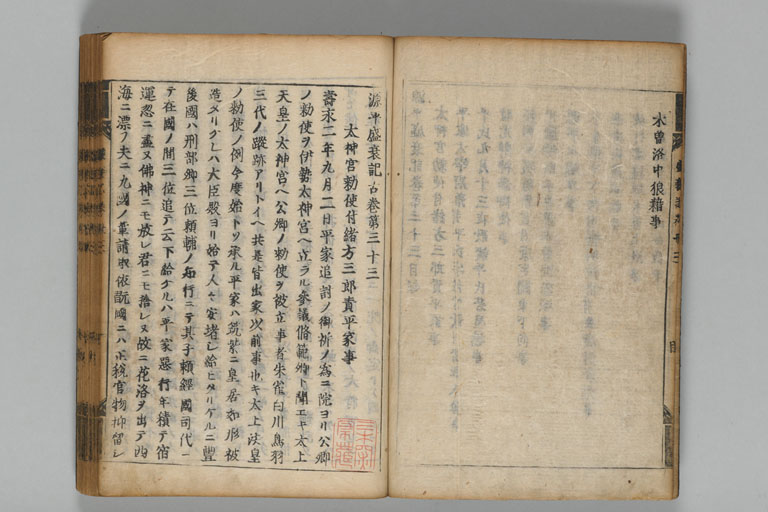 木曽洛中狼藉事
源平盛衰記 古巻第三十三
太神宮勅使付緒方三郎責平家事
壽永二年九月二日平家追討ノ御祈ノ為ニ院ヨリ公卿
ノ勅使ヲ伊勢太神宮ヘ立ラル参議脩範卿ト聞エキ太上
天皇ノ太神宮ヘ公卿ノ勅使ヲ被立事者朱雀白川鳥羽
三代ノ蹤跡アリトイヘ共是皆出家以前事也キ太上法皇
ノ勅使ノ例今度始トソ承ル平家ハ筑紫ニ皇居如形被
造メクレハ大臣殿ヨリ始テ人々安堵シ給ヒタリケルニ豊
後國ハ刑部卿三位頼輔ノ知行ニテ其子頼經國司代
テ在國ノ間三位追テ云下給ケルハ平家悪行年積テ宿
運忽ニ盡ヌ佛神ニモ放レ君ニモ捨レヌ故ニ花洛ヲ出テ西
海ニ漂フ夫ニ九國ノ輩請取依䟽國ニハ正税官物抑留シ